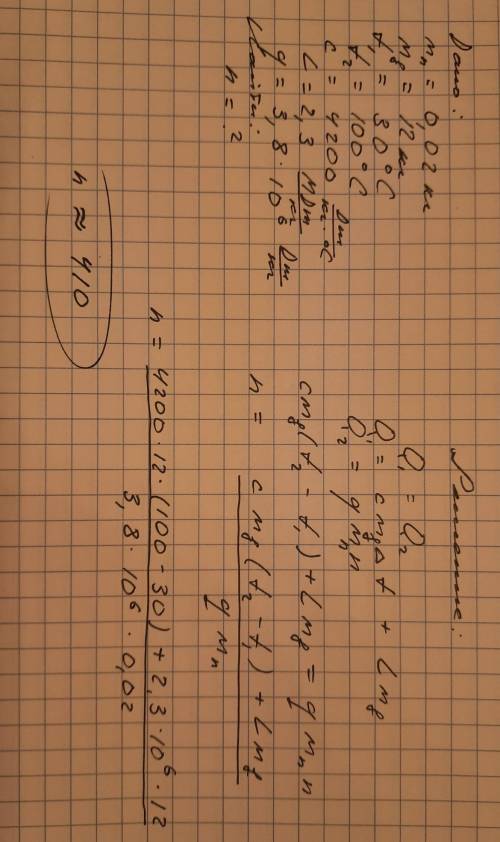 Дано:
mп = 0,02 кг
mв = 12 кг
t₁ = 30°C
t₂ = 100°C
c = 4200 Дж/кг·°C
L = 2,3 МДж/кг
q = 3,8 · 10⁶ Дж/кг
Найти:
n = ?
Решение:
Q₁ = Q₂
Q₁ = cmвΔt + Lmв
Q₂ = qmпn
cmв(t₂ - t₁) + Lmв = qmпn
n = (cmв(t₂ - t₁) + Lmв) / qmп
n = (4200·12·(100-30) + 2,3·10⁶·12) / 3,8·10⁶·0,02
n ≈ 410